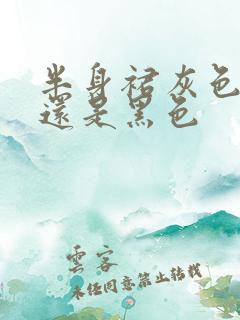 半身裙灰色
還是黑色
雲客
未经同意禁止转载